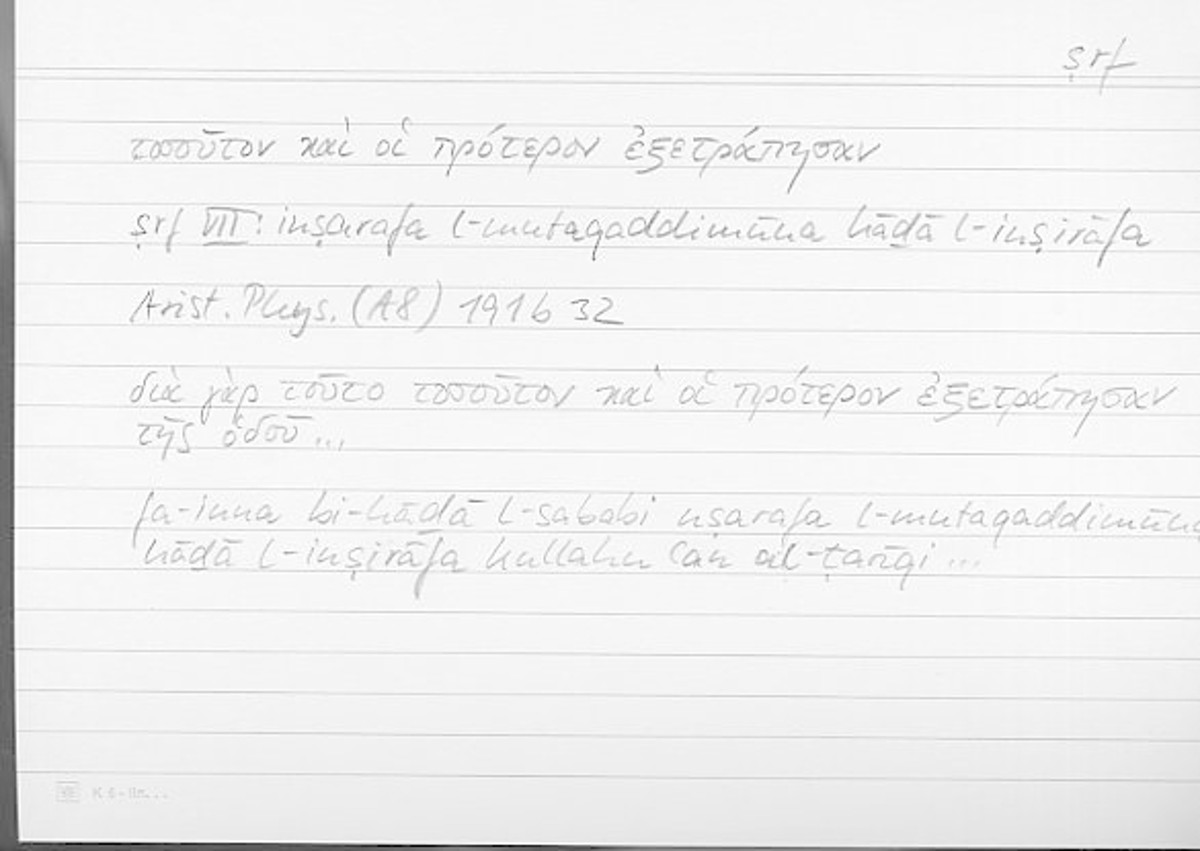 ṣrf
τοσοῦτον καὶ οἱ πρότερον ἐξετράπησαν
ṣrf VII: inṣarafa l-mutaqaddimūna hāḏā l-inṣirāfa
Arist. Phys. (A8) 191b 32
διὰ γὰρ τοῦτο τοσοῦτον καὶ οἱ πρότερον ἐξετράπησαν
τῆς ὁδοῦ ...
fa-inna bi-hāḏā l-sababi nṣarafa l-mutaqaddimūna
hāḏā l-inṣirāfa kullahu ʿan al-ṭarīqi ...